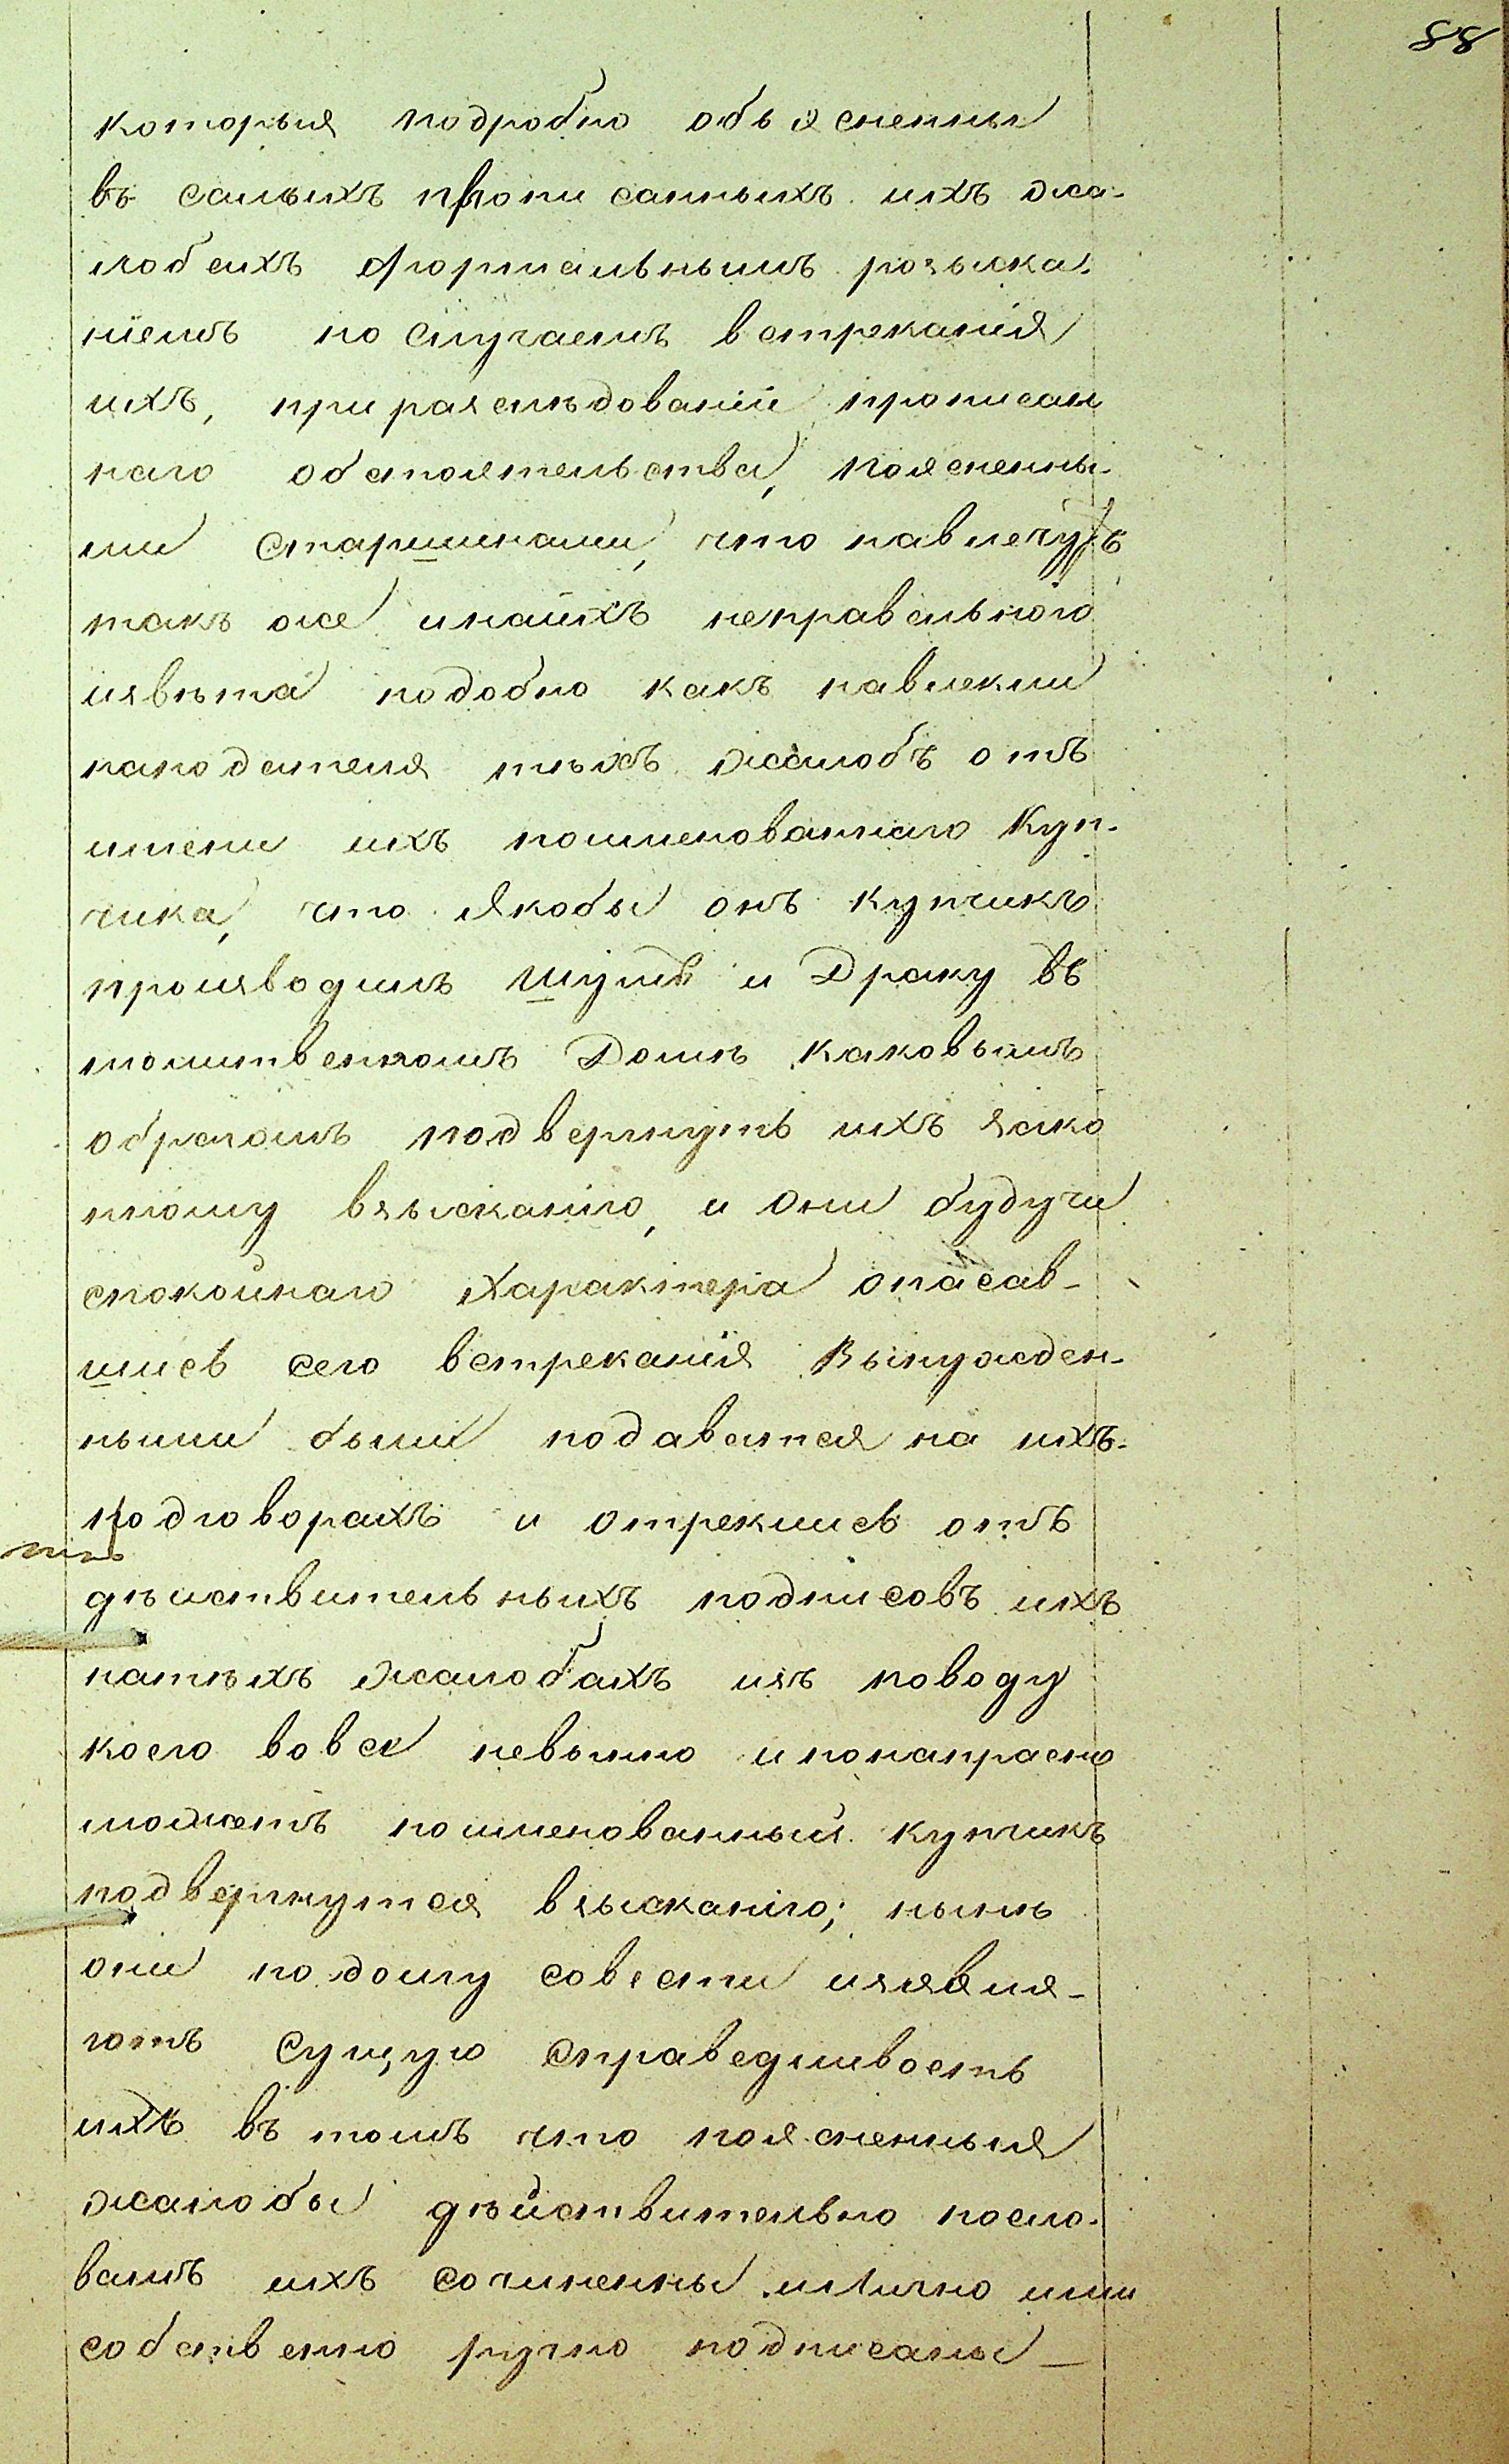 88
которыя подробно объясненны
въ самыхъ прописанныхъ ихъ жа-
лобахъ формальнымъ розыска-
ніемъ по случаемъ встреканія
ихъ, при разслѣдованіи прописан
наго обстоятельства, поясненны-
ми старшинами, что навлечутъ
такъ же инаихъ неправельного
извѣта подобно какъ навлекли
наподателя тѣхъ жалобъ отъ
имени ихъ поименованнаго Куп-
чика, что якобы онъ купчикъ
производилъ шумъ и Драку въ
молитвенномъ Домѣ каковымъ
обрагомъ подвергнутъ ихъ зако
нному взысканію, и они будучи
спокойнаго характера опасав-
шись сего встреканія вынужден-
ными были подаватся на ихъ
подговорахъ и отрекшись отъ
дѣйствительныхъ подписовъ ихъ
натѣхъ жалобахъ изъ поводу
коего вовсе невынно и понапрасно
можетъ поименованный купчикъ
подвергнутся взысканію; нынѣ
они по долгу совести изявля-
ютъ сущую справедливость
ихъ въ томъ что поясненныя
жалобы дѣйствительно посло-
вамъ ихъ сочиненны и лично ими
собственно ручно подписаны